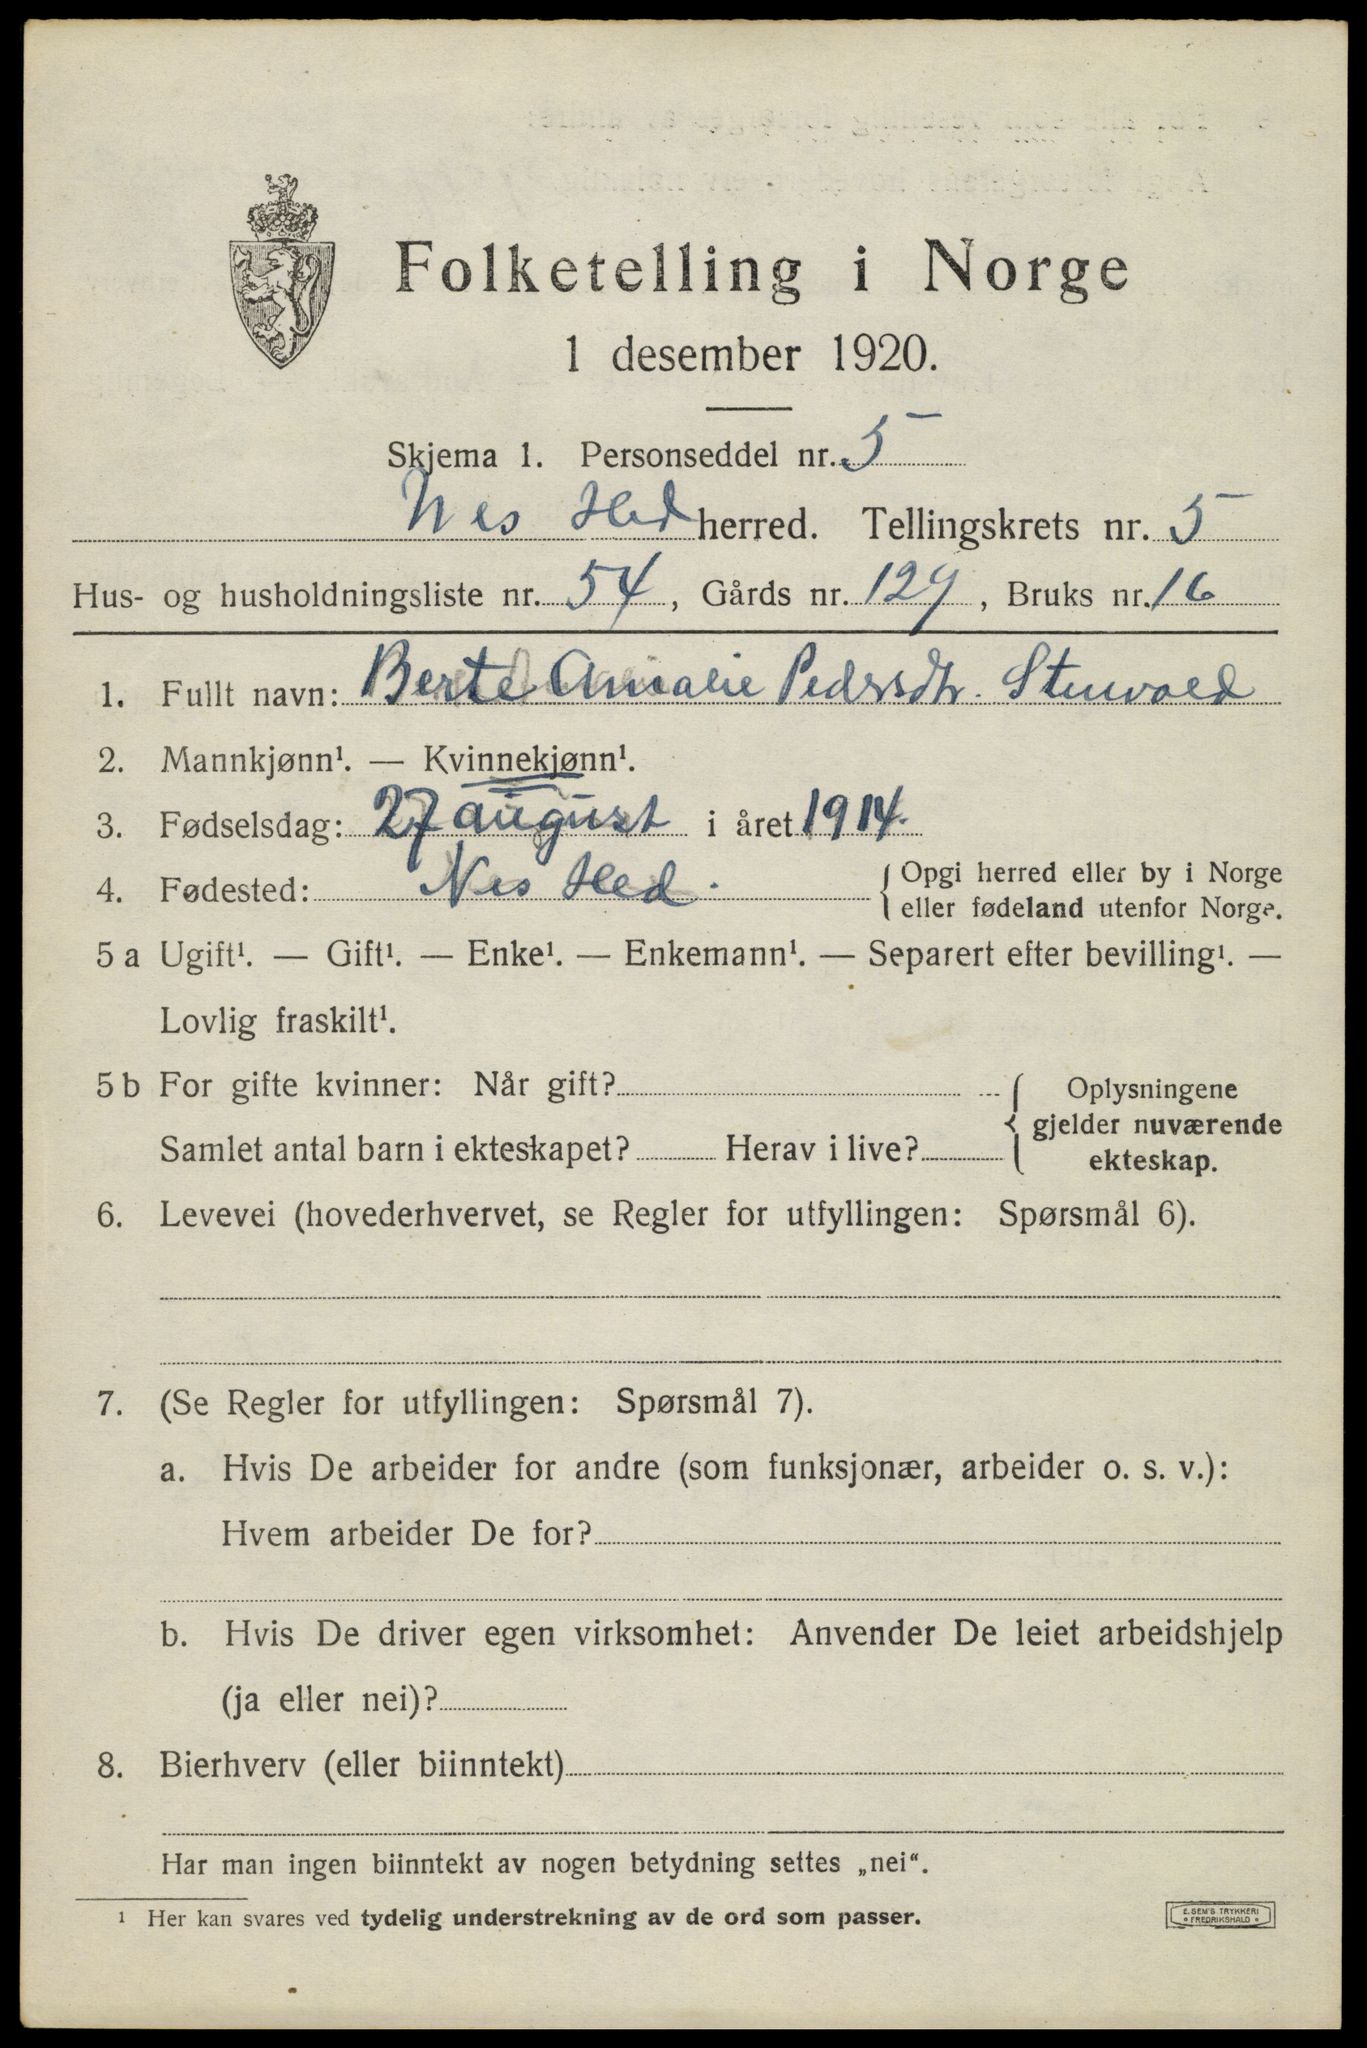 Folketelling i Norge
1 desember 1920.
Skjema 1. Personseddel nr. 5
Nes Hed herred. Tellingskrets nr. 5
Hus- og husholdningsliste nr. 54, Gårds nr. 129, Bruks nr. 16
1. Fullt navn: Berte Amalie Pedersdtr. Stenvold
2. Mannkjønn¹. — Kvinnekjønn¹.
3. Fødselsdag: 27 august i året 1914.
4. Fødested: Nes Hed. { Opgi herred eller by i Norge
eller fødeland utenfor Norge.
5 a Ugift¹. — Gift¹. — Enke¹. — Enkemann¹. — Separert efter bevilling¹. —
Lovlig fraskilt¹.
5 b For gifte kvinner: Når gift? { Oplysningene
gjelder nuværende
Samlet antal barn i ekteskapet? Herav i live? ekteskap.
6. Levevei (hovederhvervet, se Regler for utfyllingen: Spørsmål 6).
7. (Se Regler for utfyllingen: Spørsmål 7).
a. Hvis De arbeider for andre (som funksjonær, arbeider o. s. v.):
Hvem arbeider De for?
b. Hvis De driver egen virksomhet: Anvender De leiet arbeidshjelp
(ja eller nei)?
8. Bierhverv (eller biinntekt)
Har man ingen biinntekt av nogen betydning settes „nei“.
¹ Her kan svares ved tydelig understrekning av de ord som passer.
E. SEM'S TRYKKERI
• FREDRIKSHALD •